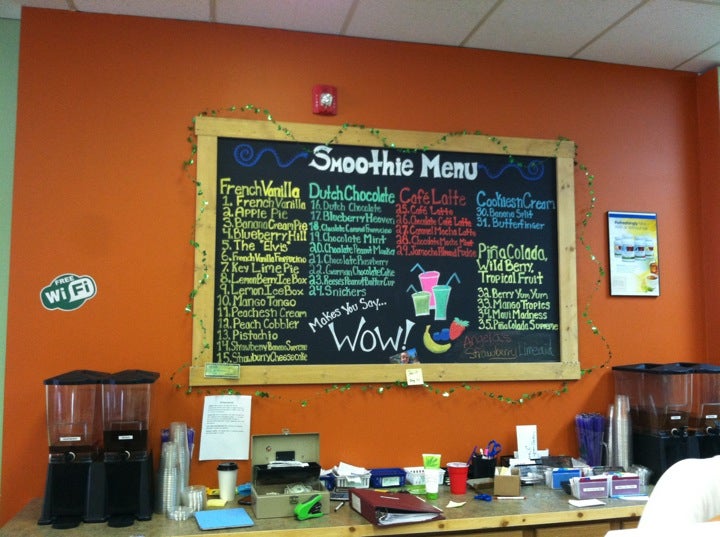 Smoothie Menu
French Vanilla
1. French Vanilla
2. Apple Pie
3. Banana Cream Pie
4. Blueberry Hill
5. The "Elvis"
6. French Vanilla Frappuccino
7. Key Lime Pie
8. Lemon Berry Ice Box
9. Lemon Ice Box
10. Mango Tango
11. Peaches n Cream
12. Peach Cobbler
13. Pistachio
14. Strawberry Banana Supreme
15. Strawburry Cheesecake
Dutch Chocolate
16. Dutch Chocolate
17. Blueberry Heaven
18. Chocolate Caramel Frappuccino
19. Chocolate Mint
20. Chocolate Peanut
21. Chocolate Raspberry
22. German Chocolate Cake
23. Reese's Peanut Butter Cup
24. Snickers
Café Latte
25. Café Latte
26. Chocolate Latte
27. Caramel Mocha Latte
28. Chocolate Mocha Mint
29. Jamocha Almond Fudge
Cookies n Cream
30. Banana Split
31. Butterfinger
Piña Colada,
Wild Berry,
Tropical Fruit
32. Berry Yum Yum
33. Mango Tropics
34. Maui Madness
35. Piña Colada Supreme
Makes You Say...
WOW!
Angela's
Strawberry Limeade
FREE
WiFi